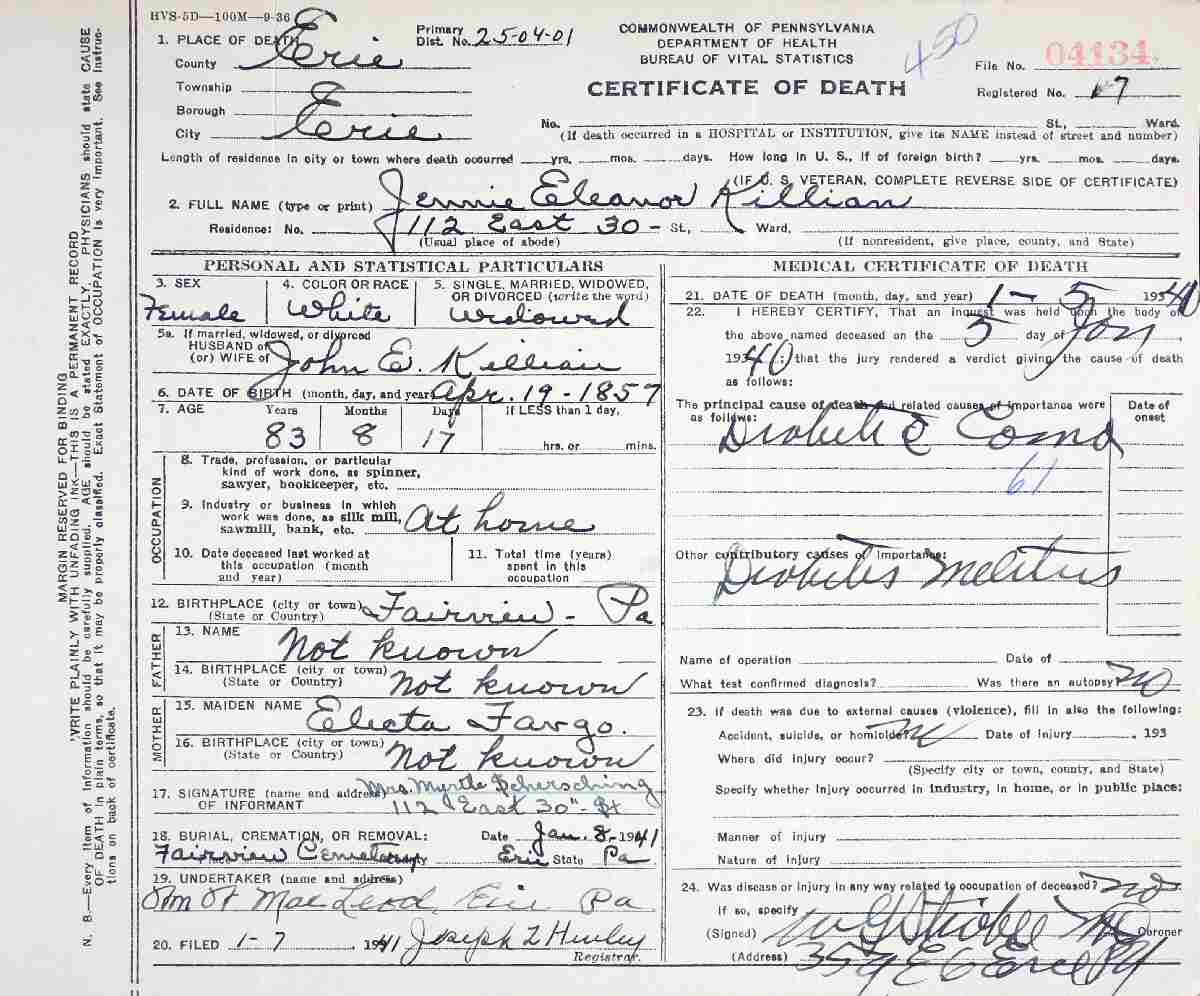 HVS-5D—100M—9-36
COMMONWEALTH OF PENNSYLVANIA
DEPARTMENT OF HEALTH
BUREAU OF VITAL STATISTICS
CERTIFICATE OF DEATH
450
File No. 04134
Registered No. 17
1. PLACE OF DEATH
County Erie
Primary Dist. No. 25-04-01
Township
Borough
City Erie
No. St., Ward.
(If death occurred in a HOSPITAL or INSTITUTION, give its NAME instead of street and number)
Length of residence in city or town where death occurred yrs. mos. days. How long in U. S., if of foreign birth? yrs. mos. days.
(IF U. S. VETERAN, COMPLETE REVERSE SIDE OF CERTIFICATE)
2. FULL NAME (type or print) Jennie Eleanor Killian
Residence: No. 112 East 30 - St., Ward,
(Usual place of abode) (If nonresident, give place, county, and State)
PERSONAL AND STATISTICAL PARTICULARS
3. SEX
Female
4. COLOR OR RACE
White
5. SINGLE, MARRIED, WIDOWED,
OR DIVORCED (write the word)
Widowed
5a. If married, widowed, or divorced
HUSBAND of
(or) WIFE of John E. Killian
6. DATE OF BIRTH (month, day, and year) Apr. 19 - 1857
7. AGE Years Months Days If LESS than 1 day,
83 8 17 hrs. or mins.
OCCUPATION
8. Trade, profession, or particular
kind of work done, as spinner,
sawyer, bookkeeper, etc.
9. Industry or business in which
work was done, as silk mill,
sawmill, bank, etc. At home
10. Date deceased last worked at
this occupation (month
and year)
11. Total time (years)
spent in this
occupation
12. BIRTHPLACE (city or town) Fairview - Pa
(State or Country)
FATHER
13. NAME Not known
14. BIRTHPLACE (city or town)
(State or Country) Not known
MOTHER
15. MAIDEN NAME Electa Fargo.
16. BIRTHPLACE (city or town)
(State or Country) Not known
17. SIGNATURE (name and address) Mrs. Myrtle Schersching
OF INFORMANT 112 East 30" - St
18. BURIAL, CREMATION, OR REMOVAL: Date Jan. 8 - 1941
Fairview Cemetery County Erie State Pa
19. UNDERTAKER (name and address)
MacLeod, Erie Pa
20. FILED 1-7, 1941 Joseph
Registrar.
MEDICAL CERTIFICATE OF DEATH
21. DATE OF DEATH (month, day, and year) 1 - 5 193
22. I HEREBY CERTIFY, That an inquest was held upon the body of
the above named deceased on the 5 day of Jan
193 40; that the jury rendered a verdict giving the cause of death
as follows:
The principal cause of death and related causes of importance were
as follows:
Date of
onset
Diabetic Coma
61
Other contributory causes of importance:
Diabetes Melitus
Name of operation Date of
What test confirmed diagnosis? Was there an autopsy? no
23. If death was due to external causes (violence), fill in also the following:
Accident, suicide, or homicide? Date of injury , 193
Where did injury occur?
(Specify city or town, county, and State)
Specify whether injury occurred in industry, in home, or in public place:
Manner of injury
Nature of injury
24. Was disease or injury in any way related to occupation of deceased? no
If so, specify
(Signed) Coroner
(Address)
MARGIN RESERVED FOR BINDING
WRITE PLAINLY WITH UNFADING INK—THIS IS A PERMANENT RECORD
N. B.—Every item of information should be carefully supplied. AGE should be stated EXACTLY. PHYSICIANS should state CAUSE
OF DEATH in plain terms, so that it may be properly classified. Exact Statement of OCCUPATION is very important. See instruc-
tions on back of certificate.